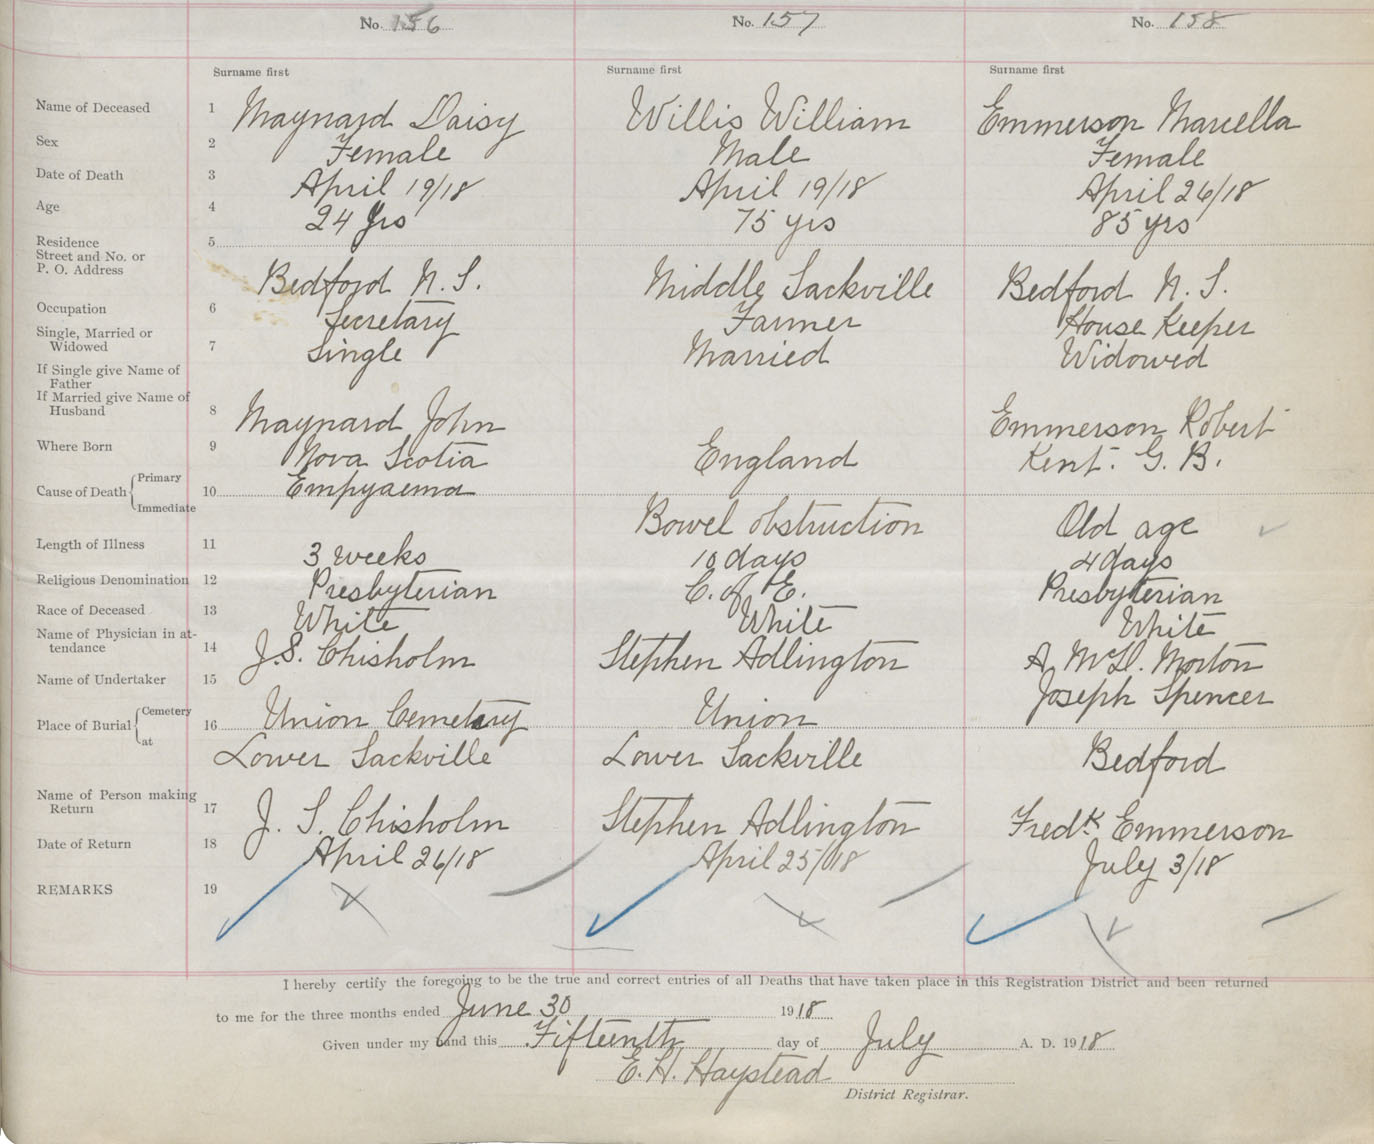 No. 156 No. 157 No. 158
Surname first Surname first Surname first
Name of Deceased 1 Maynard Daisy Willis William Emmerson Marcella
Sex 2 Female Male Female
Date of Death 3 April 19/18 April 19/18 April 26/18
Age 4 24 yrs 75 yrs 85 yrs
Residence 5
Street and No. or
P. O. Address Bedford N. S. Middle Sackville Bedford N. S.
Occupation 6 Secretary Farmer House Keeper
Single, Married or
Widowed 7 Single Married Widowed
If Single give Name of
Father
If Married give Name of
Husband 8 Maynard John Emmerson Robert
Where Born 9 Nova Scotia England Kent. G. B.
Cause of Death { Primary
10 Empyaema
Immediate Bowel obstruction Old age
Length of Illness 11 3 weeks 10 days 4 days
Religious Denomination 12 Presbyterian C. of E. Presbyterian
Race of Deceased 13 White White White
Name of Physician in at-
tendance 14 J. S. Chisholm Stephen Adlington A. McD. Morton
Name of Undertaker 15 Joseph Spencer
Place of Burial { Cemetery
16 Union Cemetary Union
at Lower Sackville Lower Sackville Bedford
Name of Person making
Return 17 J. S. Chisholm Stephen Adlington Fredk. Emmerson
Date of Return 18 April 26/18 April 25/18 July 3/18
REMARKS 19
I hereby certify the foregoing to be the true and correct entries of all Deaths that have taken place in this Registration District and been returned
to me for the three months ended June 30 1918
Given under my hand this Fifteenth day of July A. D. 1918
E. H. Haystead
District Registrar.